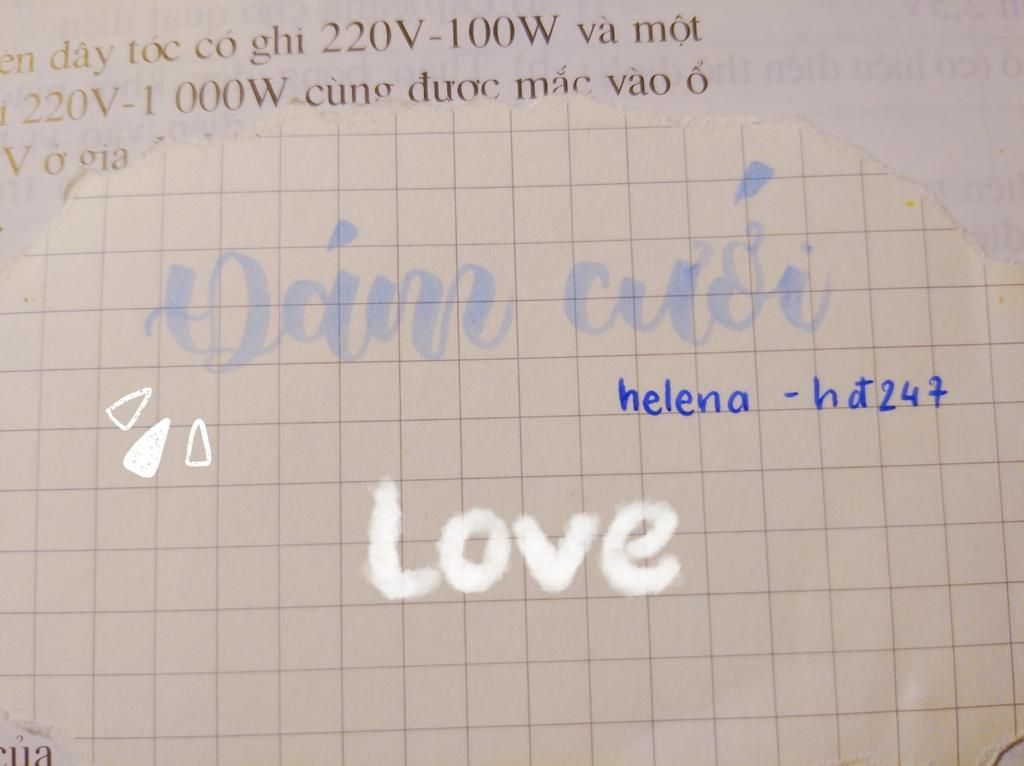 dây tóc có ghi 220V-100W và một
220V-1 000W cùng được mắc vào ổ
V ở gia
Đám cưới
helena - hđ247
Love
của